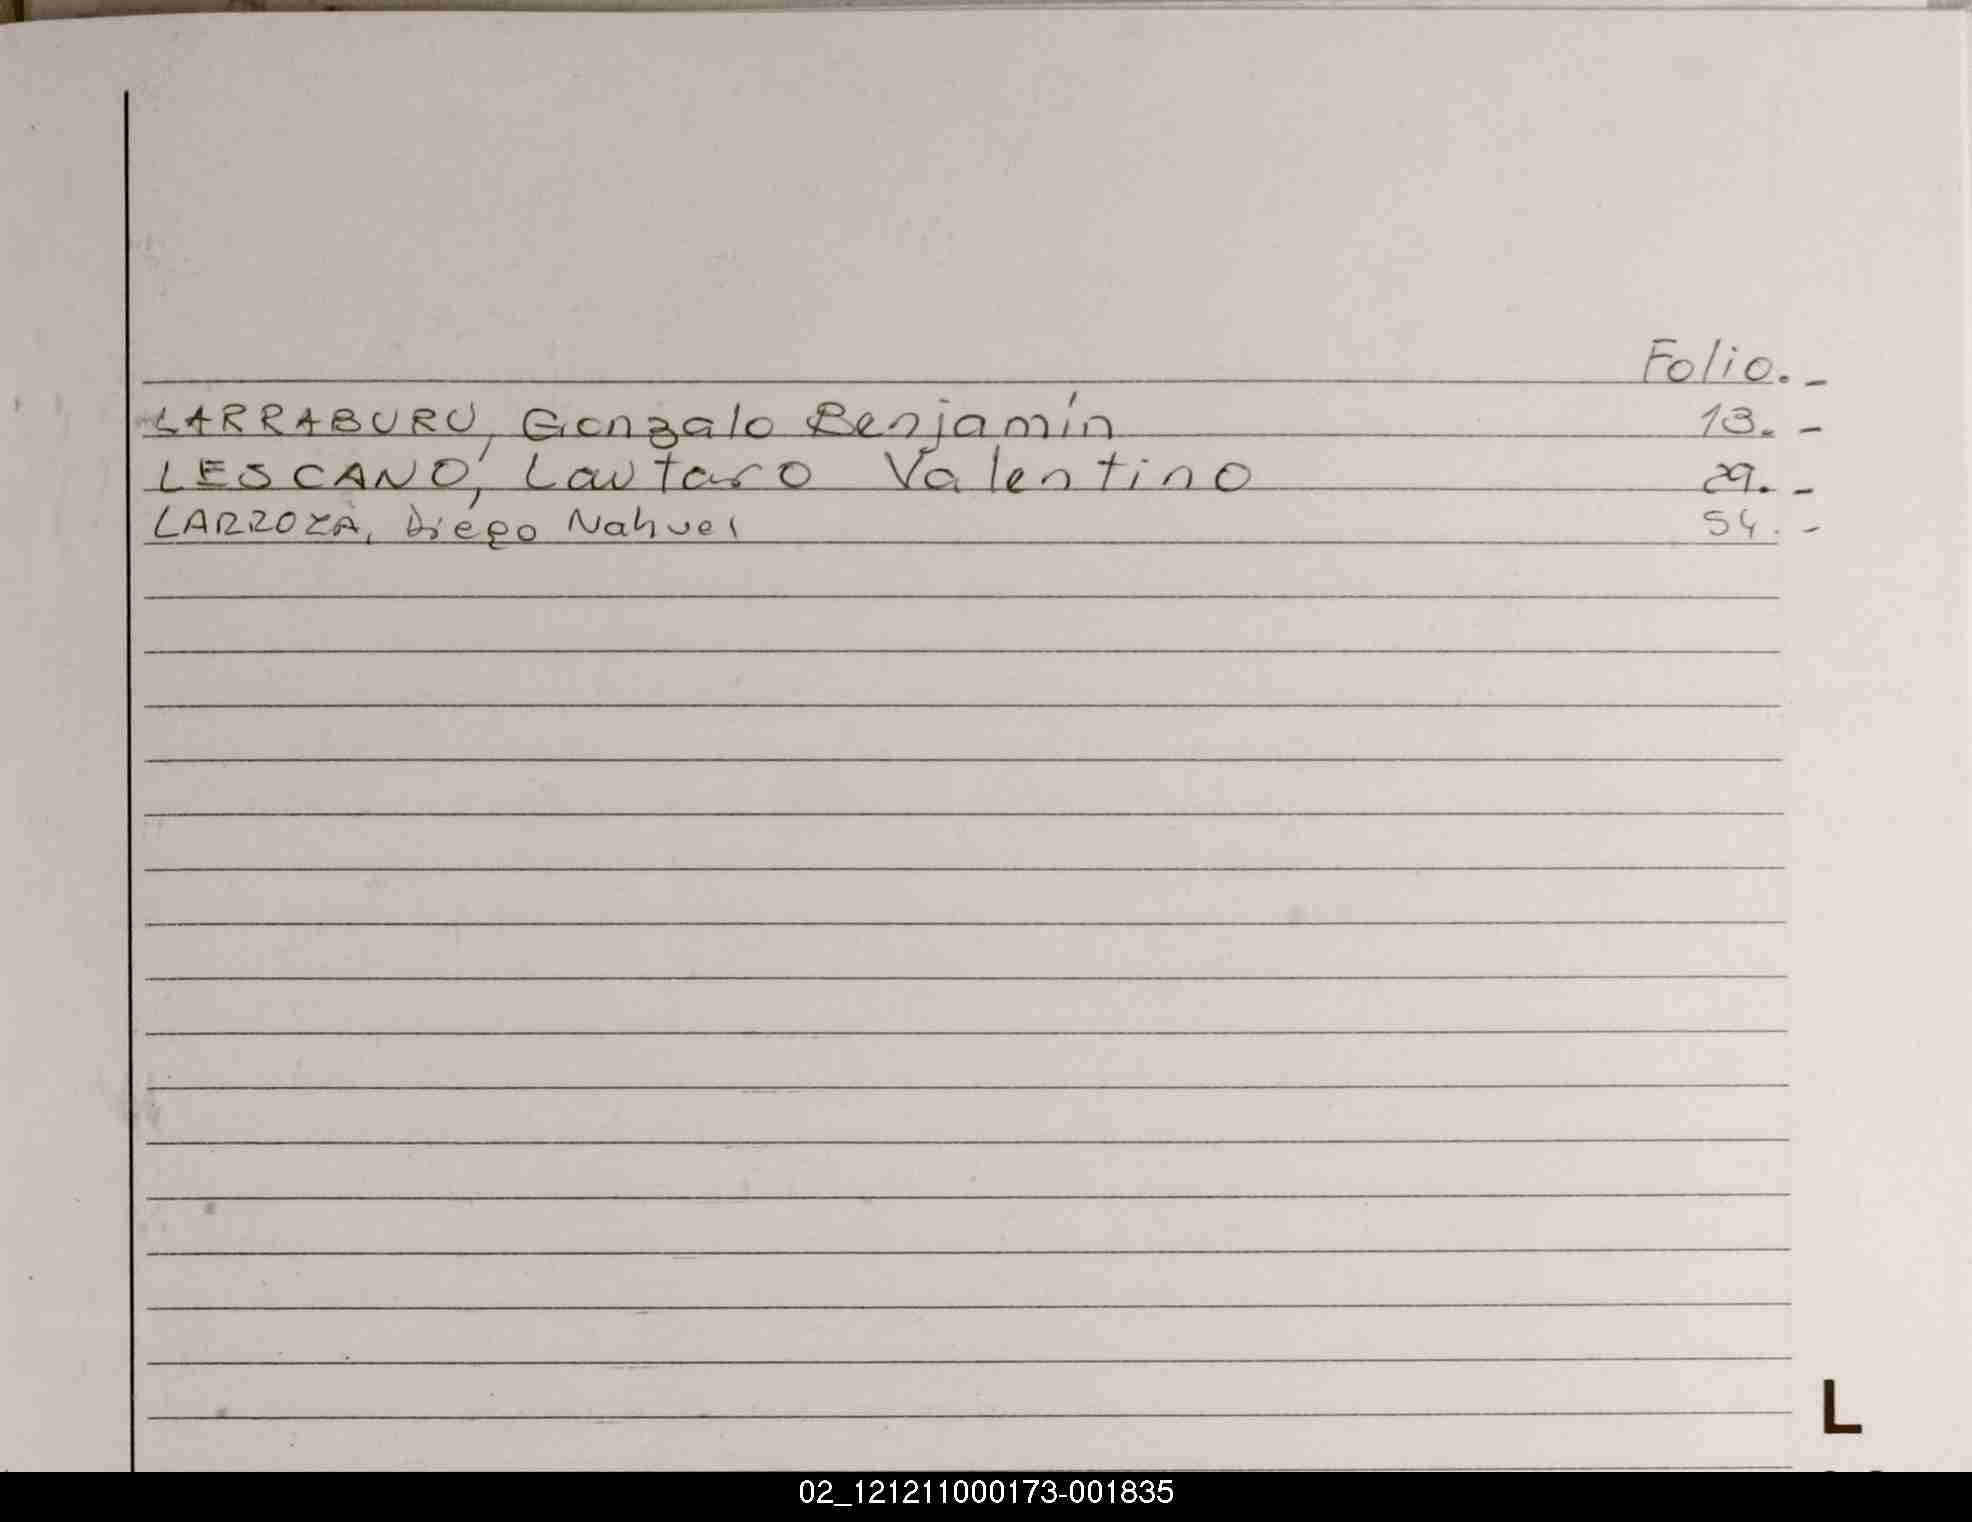 Folio.-
LARRABURU, Gonzalo Benjamín 13.-
LESCANO, Lautaro Valentino 29.-
LARROZA, Diego Nahuel 54.-
L
02_121211000173-001835